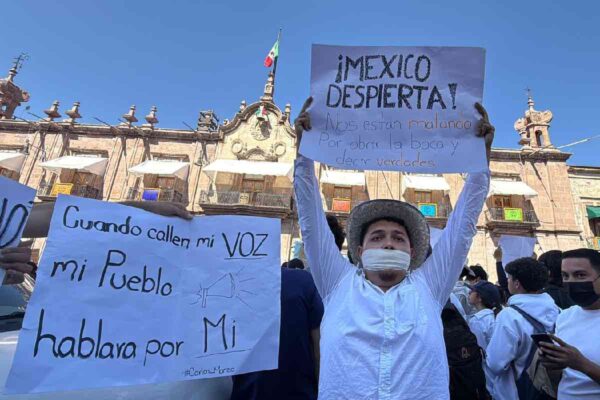 NO
Cuando callen mi VOZ
mi Pueblo
hablara por Mi
#CarlosManzo
¡MEXICO
DESPIERTA!
Nos están matando
Por abrir la boca y
decir verdades.